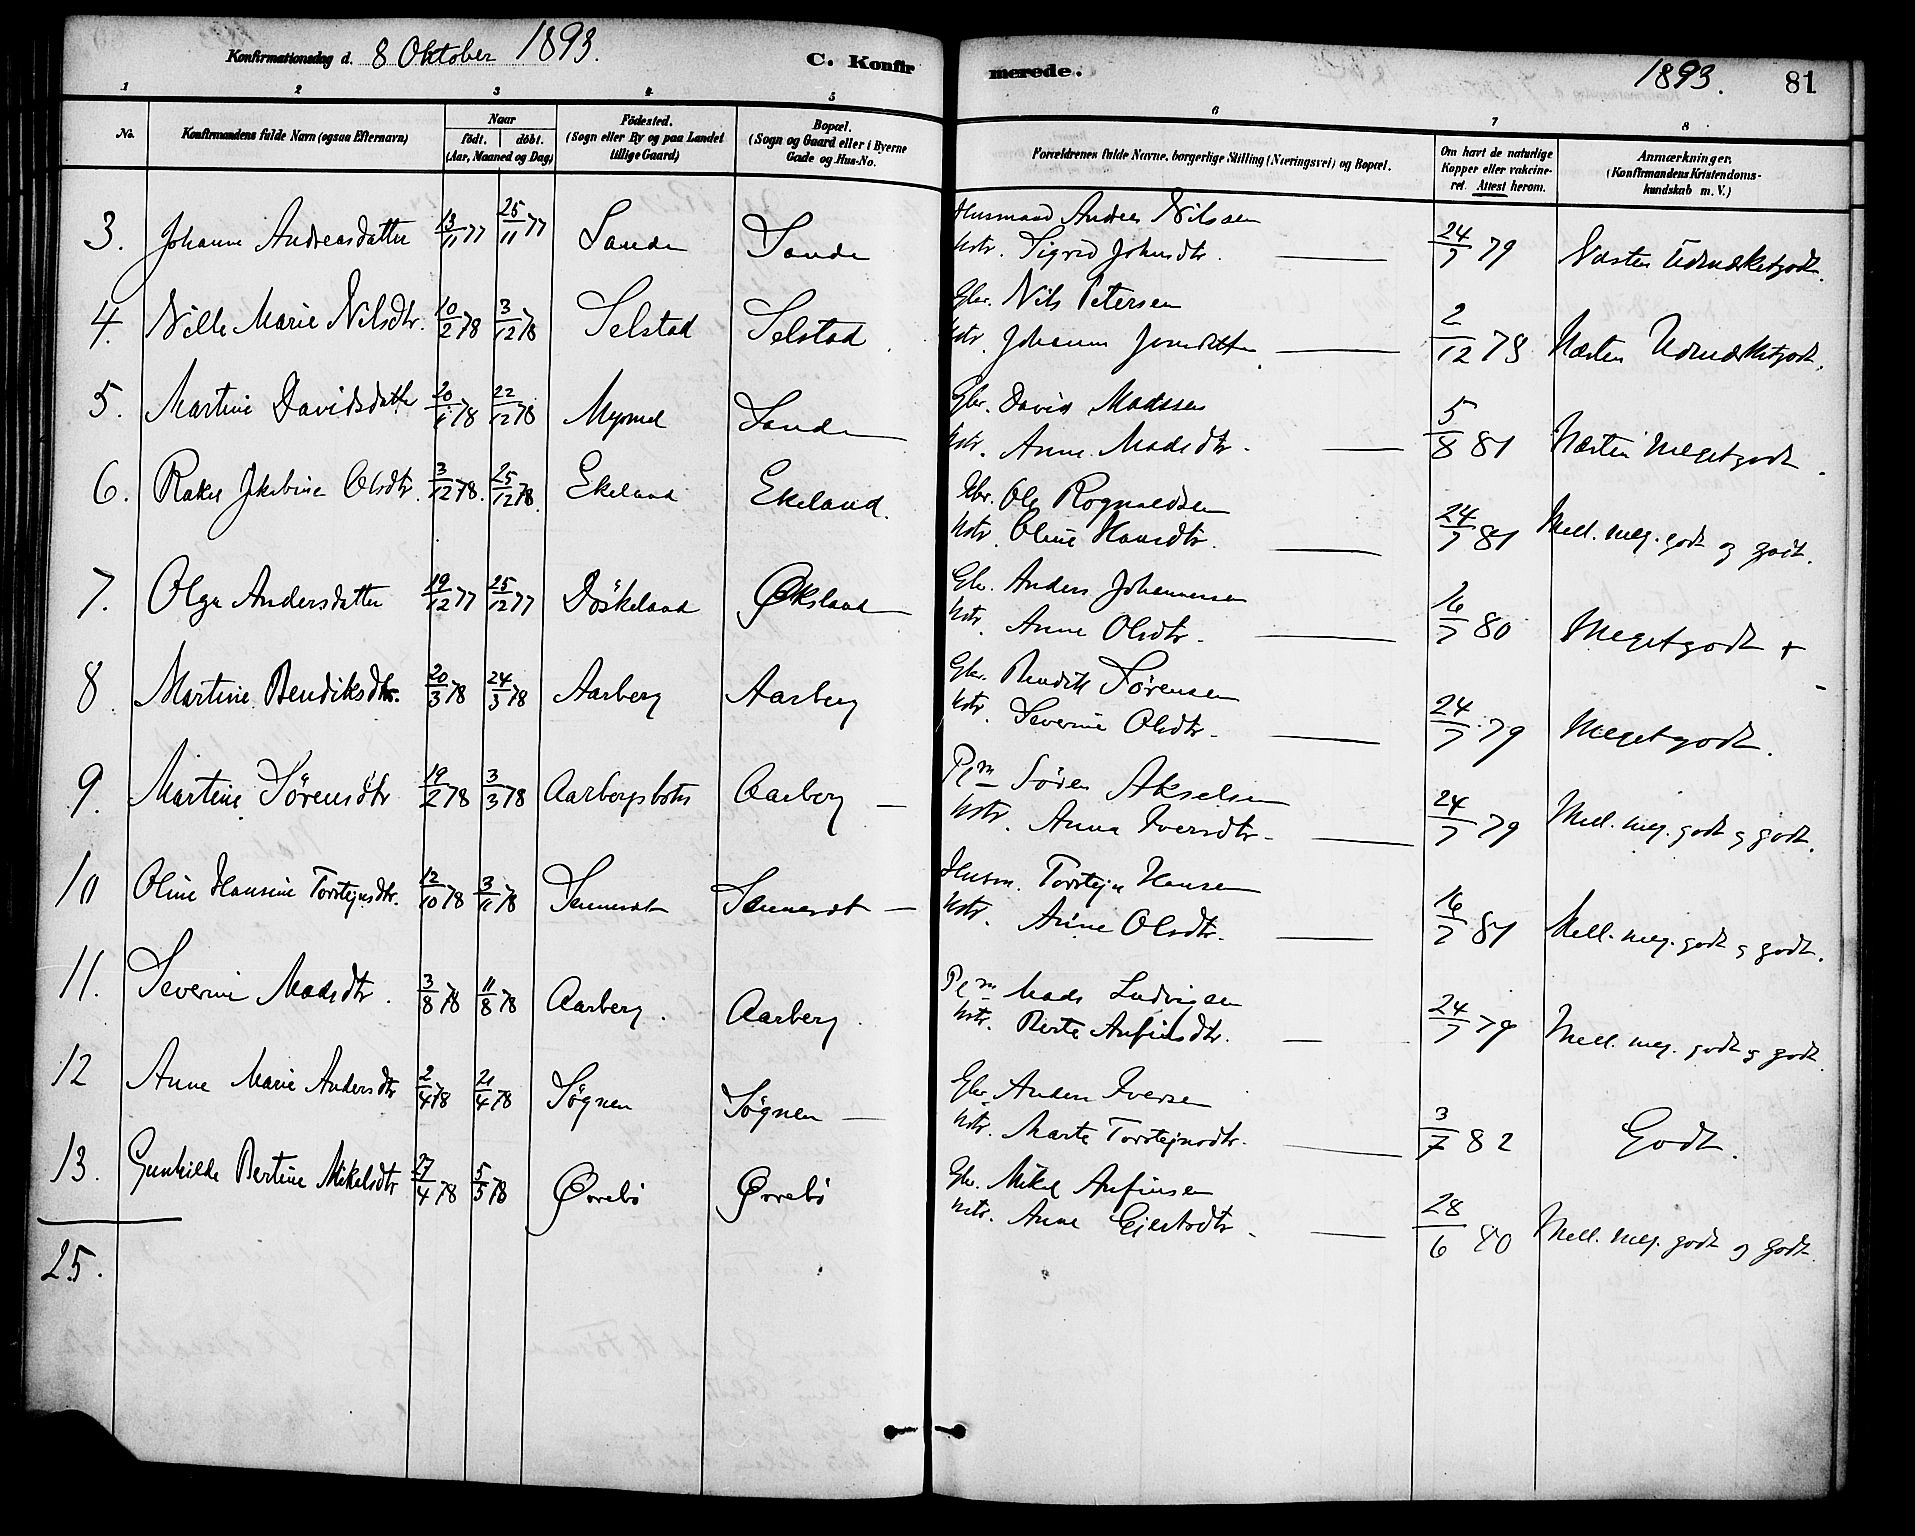 Konfirmationsdag d. 8 Oktober 1893.
C. Konfirmerede.
1893. 81
1 2 3 4 5 6 7 8
No.
Konfirmandens fulde Navn (ogsaa Efternavn)
Naar
födt. döbt.
(Aar, Maaned og Dag)
Födested.
(Sogn eller By og paa Landet
tillige Gaard)
Bopæl.
(Sogn og Gaard eller i Byerne
Gade og Hus-No.
Forældrenes fulde Navne, borgerlige Stilling (Næringsvei) og Bopæl.
Om havt de naturlige
Kopper eller vakcine-
ret. Attest herom.
Anmærkninger.
(Konfirmandens Kristendoms-
kundskab m. V.)
3. Johanne Andreasdatter 13/11 77 25/11 77 Sande Sande Husmand Andreas Nilssen
Hstr. Sigrid Johnsdtr. 24/7 79 Næsten Udmærketgodt.
4. Nille Marie Nilsdtr. 10/2 78 3/12 78 Selstad Selstad Gbr. Nils Petersen
Hstr. Johanne Jonsdatter 2/12 78 Næsten Udmærketgodt.
5. Martine Davidsdatter 20/11 78 22/12 78 Myrmel Sande Gbr. David Madssen
Hstr. Anne Madsdtr. 5/8 81 Næsten Megetgodt.
6. Rakel Jakobine Olsdtr. 3/12 78. 25/12 78. Ekeland Ekeland. Gbr. Ole Rognaldsen
Hstr. Oline Hansdtr. 24/7 81 Mell. meg. godt og godt.
7. Olga Andersdatter 19/12 77 25/12 77 Döskeland Øksland Gbr. Anders Johannesen
Hstr. Anne Olsdtr. 16/7 80 Megetgodt +
8. Martine Bendiksdtr. 20/3 78 24/3 78 Aarberg Aarberg Gbr. Bendik Sörensen
Hstr. Severine Olsdtr. 24/7 79 Megetgodt.
9. Martine Sörensdtr 19/2 78 3/3 78 Aarbergsbotn Aarberg Plm Sören Akselsen
Hstr. Anna Iversdtr. 24/7 79 Mell. meg. godt og godt.
10 Oline Hansine Torstejnsdtr. 12/10 78 3/11 78 Sennesvt Sennesvt Husm. Torstejn Hansen
Hstr. Anne Olsdtr. 16/7 81 Mell. meg. godt og godt.
11. Severine Madsdtr. 3/8 78 11/8 78 Aarberg. Aarberg. Plm Mads Ludvigsen
Hstr. Berte Anfinsdtr. 24/7 79 Mell. meg. godt og godt
12 Anne Marie Andersdtr 2/4 78 21/4 78 Sögnen Sögnen Gbr. Anders Iversen
Hstr. Marte Torstejnsdtr. 3/7 82 Godt.
13. Gunhilde Bertine Mikelsdtr 27/4 78 5/5 78 Ørrebö Ørrebö Gbr. Mikel Anfinsen
Hstr. Anne Ejlertsdtr. 28/6 80 Mell. meg. godt og godt
25.